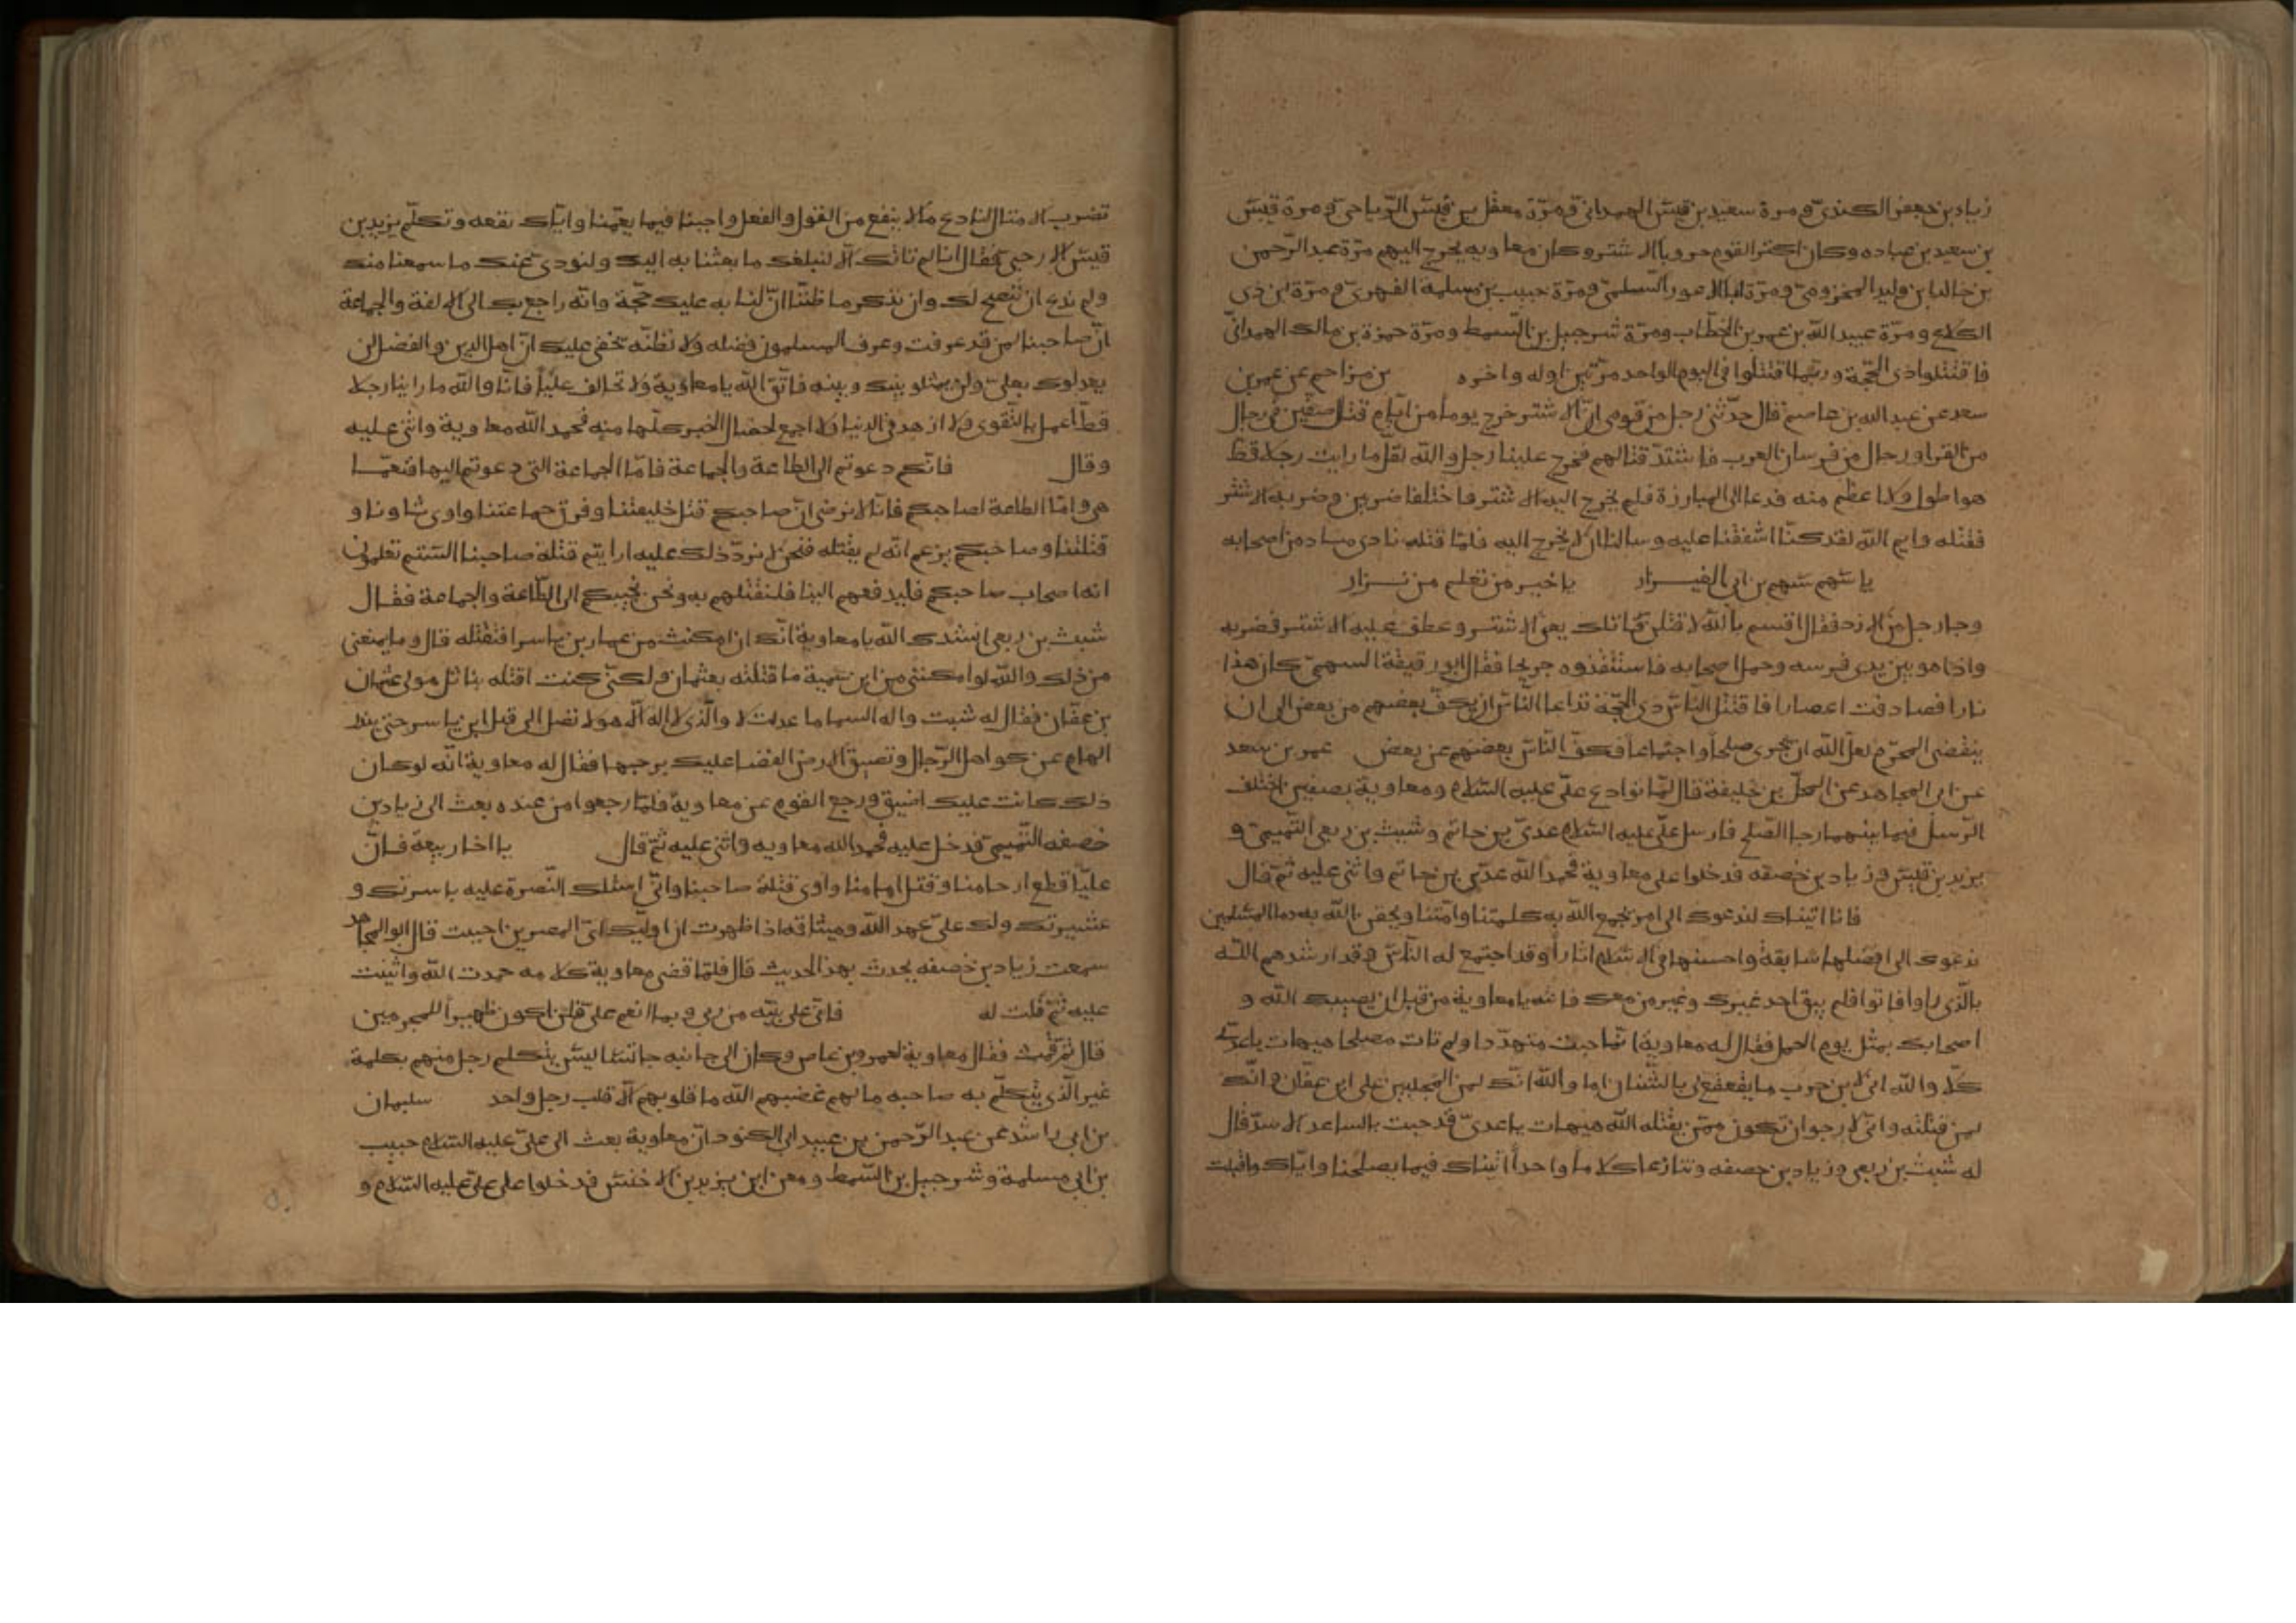 زياد بن جعفر الكندىّ ومرة سعيد بن قيس الهمدانىّ ومرّة معقل بن قيس الرّياحىّ ومرة قيس
بن سعد بن عباده وكان اكثر القوم حروبا الاشتر وكان معاويه يخرج اليهم مرّة عبد الرّحمن
بن خالد بن وليد المخزومىّ ومرّة ابا الاعور السّلمىّ ومرّة حبيب بن مسلمة الفهرىّ ومرّة ابن ذى
الكلاع ومرّة عبيد الله بن عمر بن الخطّاب ومرّة شرحبيل بن السّمط ومرّة حمزة بن مالك الهمدانىّ
فاقتتلوا ذى الحجّة وربّما اقتتلوا فى اليوم الواحد مرّتين اوله واخره بن مزاحم عن عمر بن
سعد عن عبد الله بن عاصم قال حدّثنى رجل من قومى انّ الاشتر خرج يوما من ايّام قتال صفّين فى رجال
من القرا ورجال من فرسان العرب فاشتدّ قتالهم فخرج علينا رجل والله لقلّ ما رايت رجلا قطّ
هو اطول ولا اعظم منه فدعا الى المبارزة فلم يخرج اليه الا الاشتر فاختلفا ضربتين وضربه الاشتر
فقتله وايم الله لقد كنّا اشفقنا عليه وسالناه ان لا يخرج اليه فلمّا قتله نادى مناد من اصحابه
يا سهم سهم بن ابى العيزار يا خير من نعلم من نزار
وجا رجل من الازد فقال اقسم بالله لاقتلن قاتلك يعنى الاشتر وعطف عليه الاشتر فضربه
واذا هو بين يدى فرسه وحمل اصحابه فاستنقذوه جريحا فقال ابو رقيقة السهمىّ كان هذا
نارا فصادفت اعصارا فاقتتل النّاس ذى الحجّة تداعا النّاس ان يكفّ بعضهم من بعض الى ان
ينقضى المحرّم لعلّ الله ان يجرى صلحا واجتماعا فكفّ النّاس بعضهم عن بعض عمر بن سعد
عن ابى المجاهد عن المحلّ بن خليفة قال لمّا توادع علىّ عليه السّلام ومعاوية بصفّين اختلف
الرّسل فيما بينهما رجا الصّلح فارسل علىّ عليه السّلام عدىّ بن حاتم وشبث بن ربعى التّميمىّ و
يزيد بن قيس وزياد بن خصفه فدخلوا على معاوية فحمد الله عدّى بن حاتم واثنى عليه ثمّ قال
فانا اتيناك لندعوك الى امر يجمع الله به كلمتنا وامّتنا ويحقن الله به دما المسلمين
ندعوك الى افضلها سابقة واحسنها فى الاسلام اثارا وقد اجتمع له النّاس وقد ارشدهم الله
بالّذى راوا فاتوا فلم يبق احد غيرك وغير من معك فانته يا معاوية من قبل ان يصيبك الله و
اصحابك بمثل يوم الجمل فقال له معاوية انّما جيت متهدّدا ولم تات مصلحا هيهات يا عدىّ
كلّا والله انى لابن حرب ما يقعقع لى بالشّنان اما والله انّك لمن المجلبين على ابن عفّان وانّك
لمن قتلته وانّى لارجوا ان تكون ممّن يقتله الله هيهات يا عدىّ قد جيت بالساعد الاسدّ قال
له شبث بن ربعى وزياد بن خصفه وتنازعا كلاما واحدا اتيناك فيما يصلحنا وايّاك واقبلت
تضرب الامثال لنا دع ما لا ينفع من القول والفعل واجبنا فيما يعمّنا وايّاك نفعه وتكلّم يزيد بن
قيس الارحبى فقال انا لم ناتك الّا لنبلغك ما بعثنا به اليك ولنودى عنك ما سمعنا منك
ولم ندع ان ننصح لك وان نذكر ما ظننّا انّ لنا به عليك حجّة وانه راجع بك الى الالفة والجماعة
انّ صاحبنا لمن قد عرفت وعرف المسلمون فضله ولا نظنّه يخفى عليك انّ اهل الدين والفضل لن
يعدلوك بعلى ولن يمثلو بينك وبينه فاتّق الله يا معاوية ولا تخالف عليّا فانّا والله ما راينا رجلا
قطّ اعمل بالتّقوى ولا ازهد فى الدنيا ولا اجمع لخصال الخير كلّها منه فحمد الله معاوية واثنى عليه
وقال فانّكم دعوتم الى الطاعة والجماعة فامّا الجماعة التى دعوتم اليها فنعمّا
هى وامّا الطاعة لصاحبكم فانّا لا نرضى انّ صاحبكم قتل خليفتنا وفرق جماعتنا واوى ثاونا و
قتلتنا وصاحبكم يزعم انّه لم يقتله فنحن لا نردّ ذلك عليه ارايتم قتلة صاحبنا الستم تعلمون
انه اصحاب صاحبكم فليدفعهم الينا فلنقتلهم به ونحن نجيبكم الى الطّاعة والجماعة فقال
شبث بن ربعى انشدك الله يا معاوية انّك ان امكنت من عمار بن ياسر افتقتله قال وما يمنعنى
من ذلك والله لو امكننى من ابن سمية ما قتلته بعثمان ولكنّى كنت اقتله بناتل مولى عثمان
بن عفّان فقال له شبث واله السما ما عدلت لا والّذى لا اله الّا هو لا تصل الى قتل ابن ياسر حتى يندر
الهام عن كواهل الرّجال وتضيق الارض الفضا عليك برحبها فقال له معاوية انّه لو كان
ذلك كانت عليك اضيق ورجع القوم عن معاوية فلمّا رجعوا من عنده بعث الى زياد بن
خصفه التّميمىّ فدخل عليه فحمد الله معاويه واثنى عليه ثمّ قال يا اخا ربيعة فانّ
عليّا قطع ارحامنا وقتل امامنا واوى قتلة صاحبنا وانّى اسئلك النّصرة عليه باسرتك و
عشيرتك ولك علىّ عهد الله وميثاقه اذا ظهرت ان اوليك اىّ المصرين احببت قال ابو المجاهد
سمعت زياد بن خصفه يحدث بهذا الحديث قال فلمّا قضى معاوية كلامه حمدت الله واثنيت
عليه ثمّ قلت له فانّى على بيّنه من ربى وبما انعم علىّ فلن اكون ظهيرا للمجرمين
قال ثمّ قمت فقال معاوية لعمرو بن عاص وكان الى جانبه جالسا ليس يتكلم رجل منهم بكلمة
غير الّذى يتكلّم به صاحبه ما لهم غضبهم الله ما قلوبهم الّا قلب رجل واحد سليمان
بن ابى راشد عن عبد الرّحمن بن عبيد ابى الكنود انّ معاوية بعث الى علىّ عليه السّلام حبيب
بن ابى مسلمة وشرحبيل بن السّمط ومعن ابن يزيد بن الاخنس فدخلوا على علىّ عليه السّلام و